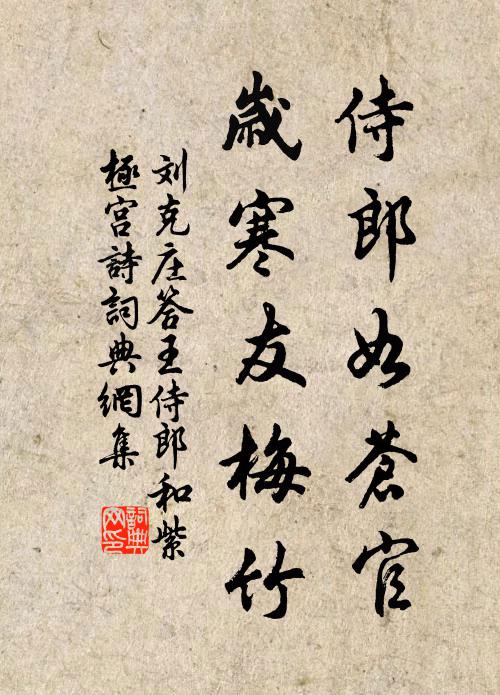 侍郎如苍官
歲寒友梅竹
刘克庄答王侍郎和紫
極宫詩詞典網集
詞典网印